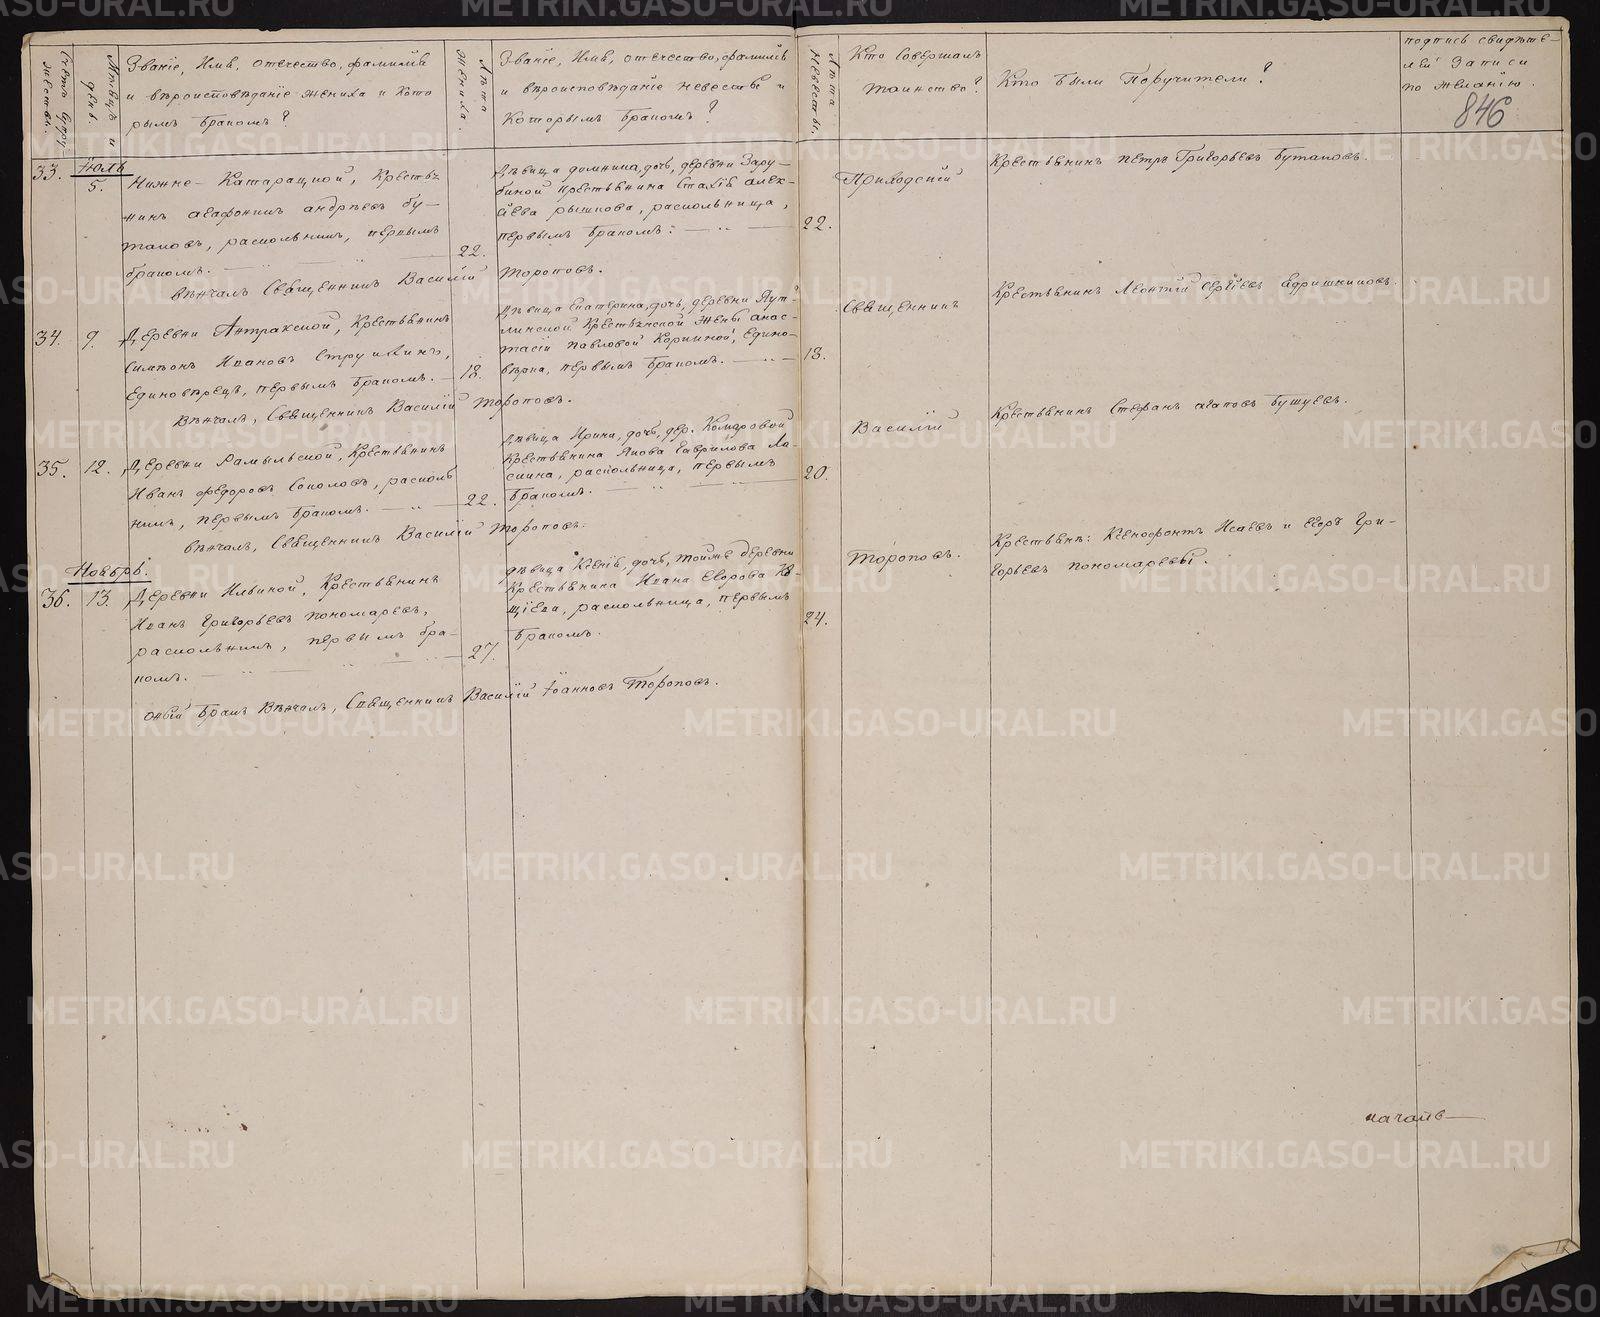 Счетъ супружества.
Мѣсяцъ и день.
Званіе, Имя, отечество, фамилія
и вѣроисповѣданіе жениха и кото
рымъ бракомъ?
Лѣта жениха.
Званіе, Имя, отечество, фамилія
и вѣроисповѣданіе невесты и
которымъ бракомъ?
Лѣта невесты.
Кто совершалъ
таинство?
Кто были поручители?
подпись свидѣте-
лей записи
по желанію.
846
33. Іюль
5.
Нижне-Катарацкой, крестья
нинъ агафоникъ андрѣевъ бу-
таковъ, раскольникъ, первымъ
бракомъ.
22.
Дѣвица домника, дочь, деревни Зару-
биной крестьянина Стахія алек-
сіева рышкова, раскольница,
первымъ бракомъ.
22.
Приходскій
Крестьянинъ петръ Григорьевъ Бутаковъ.
вѣнчалъ Священникъ Василій Тороповъ.
34. 9. Деревни Антракской, крестьянинъ
Симеонъ Ивановъ
единовѣрецъ, первымъ бракомъ.
18.
Дѣвица Екатерина, дочь, деревни
крестьянской жены анас-
тасіи павловой Коркиной, едино-
вѣрка, первымъ бракомъ.
18.
Священникъ
Крестьянинъ Леонтій Сергіевъ
Вѣнчалъ, Священникъ Василій Тороповъ.
35. 12. Деревни Рамыльской, крестьянинъ
Иванъ Федоровъ Соколовъ, расколь
никъ, первымъ бракомъ.
22.
Дѣвица Ирина, дочь, дер. Комаровой
крестьянина Якова Гаврилова Ла-
скина, раскольница, первымъ
бракомъ.
20.
Василій
Крестьянинъ Стефанъ агаповъ Бушуевъ.
вѣнчалъ, Священникъ Василій Тороповъ.
Ноябрь.
36. 13. Деревни Ильиной, крестьянинъ
Иванъ Григорьевъ пономаревъ,
раскольникъ, первымъ бра-
комъ.
27.
дѣвица Ксенія, дочь, тойже деревни
крестьянина Ивана Егорова Ко-
щіева, раскольница, первымъ
бракомъ.
24.
Тороповъ.
Крестьяне: Ксенофонтъ Исаевъ и Егоръ Гри-
горьевъ пономаревы.
оный бракъ Вѣнчалъ, Священникъ Василій Іоанновъ Тороповъ.
METRIKI.GASO-URAL.RU